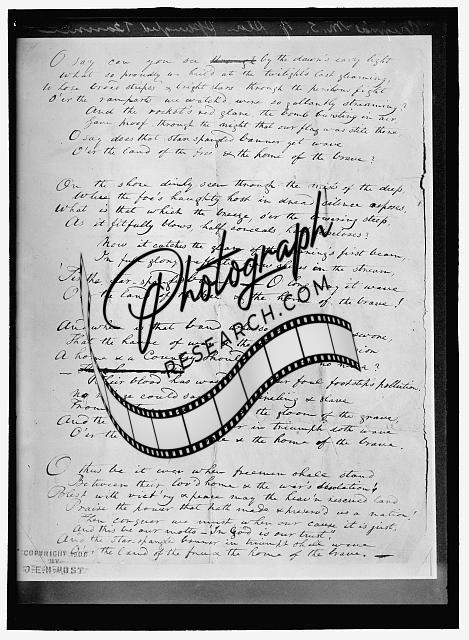 Original M.S. of Star Spangled Banner
O say can you see through by the dawn's early light
What so proudly we hail'd at the twilight's last gleaming,
Whose broad stripes & bright stars through the perilous fight
O'er the ramparts we watch'd were so gallantly streaming?
And the rocket's red glare, the bomb bursting in air,
Gave proof through the night that our flag was still there
O say does that star spangled banner yet wave
O'er the land of the free & the home of the brave?
On the shore dimly seen through the mists of the deep,
Where the foe's haughty host in dread silence reposes,
What is that which the breeze, o'er the towering steep,
As it fitfully blows, half conceals discloses?
Now it catches the gleam of the morning's first beam,
In full glory in the stream,
'Tis the star spangled O wave
O the land & the of the brave!
And where is that band so
That the havoc of
A home & a Country should
Their blood has foul footstep's pollution
No could & slave
From the gloom of the grave,
And the in triumph doth wave
O'er the & the home of the brave.
O thus be it ever when freemen shall stand
Between their lov'd home & the war's desolation!
Blest with vict'ry & peace may the heav'n rescued land
Praise the power that hath made & preserv'd us a nation!
Then conquer we must when our cause it is just,
And this be our motto - "In God is our trust,"
And the star-spangled banner in triumph shall wave
O'er the land of the free & the home of the brave. —
Photograph
RESEARCH.COM
COPYRIGHT
BY